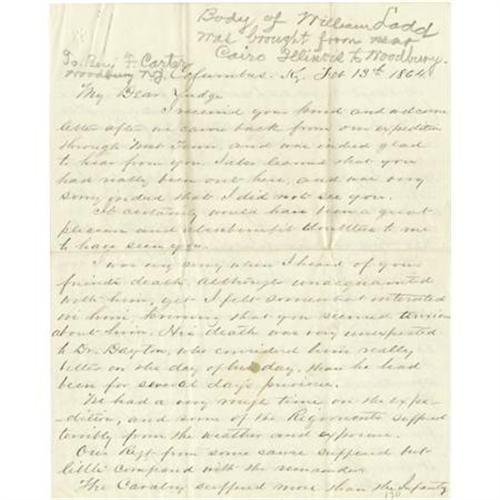 Body of William Ladd
was brought from near
Cairo Illinois to Woodbury.
To Benj. F. Carter
Woodbury N.J.
Columbus. Ky. Feb 13th 1864
My Dear Judge
I received your kind and welcome
letter after we came back from our expedition
through West Tenn, and was indeed glad
to hear from you. I also learned that you
had really been out here, and was very
sorry indeed that I did not see you.
It certainly would have been a great
pleasure and benefit doubtless to me
to have seen you.
I was very sorry when I heard of your
friends death. Although unacquainted
with him, yet I felt somewhat interested
in him knowing that you seemed
about him. His death was very unexpected
to Dr. Bayton, who considered him really
better on the day of his day, than he had
been for several days previous.
We had a very rough time on the expe-
dition, and some of the Regiments suffered
terribly from the weather and exposure.
Our Regt from some cause suffered but
little compared with the remainder.
The Cavalry suffered more than the Infantry